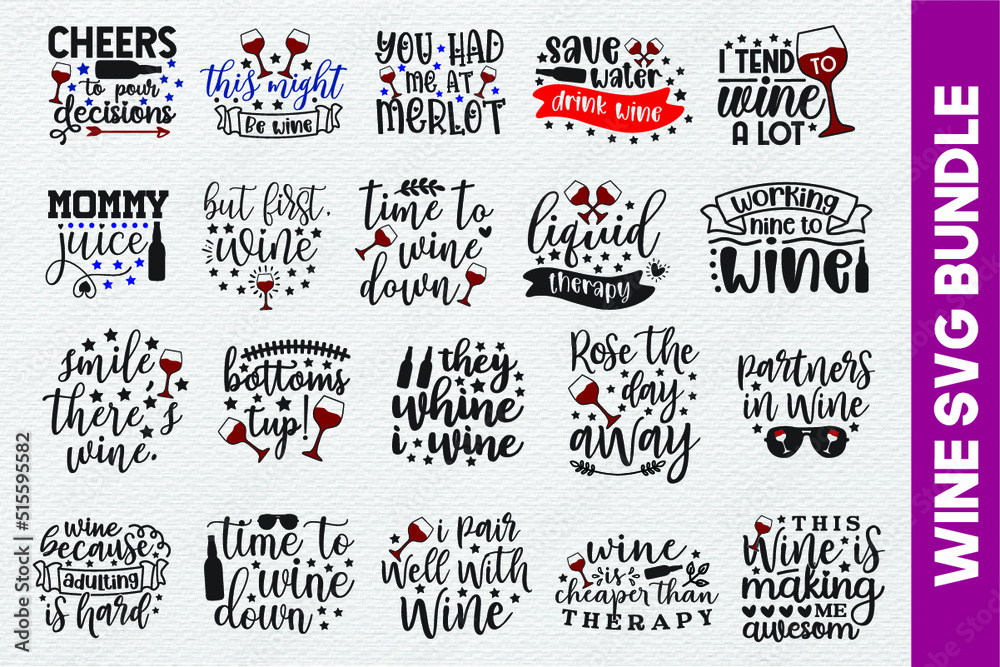 CHEERS
to pour
decisions
this might
Be wine
YOU HAD
ME AT
MERLOT
save
water
drink wine
I TEND TO
wine
A LOT
MOMMY
juice
but first,
wine
time to
wine
down
liquid
therapy
working
nine to
wine
smile
there's
wine.
bottoms
tup!
they
whine
i wine
Rose the
day
away
partners
in wine
wine
because
adulting
is hard
time to
wine
down
i pair
well with
wine
wine
is
cheaper than
THERAPY
THIS
wine is
making
ME
awesom
WINE SVG BUNDLE
Adobe Stock | #515595582